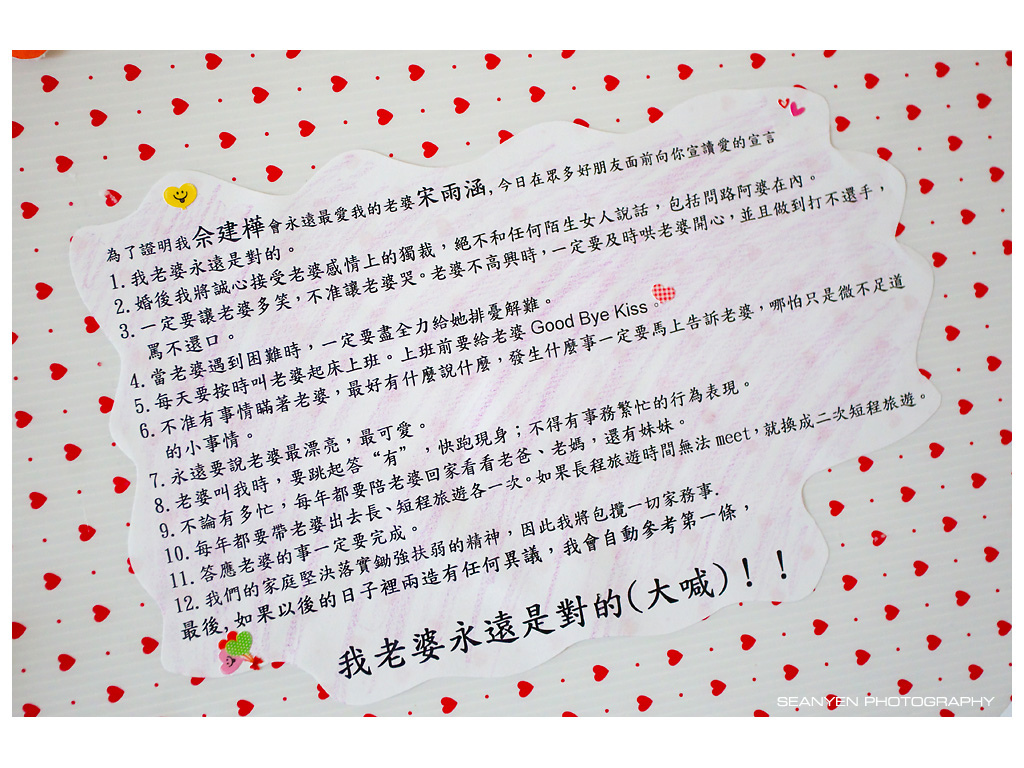 為了證明我佘建樺會永遠最愛我的老婆宋雨涵,今日在眾多好朋友面前向你宣讀愛的宣言
1. 我老婆永遠是對的。
2. 婚後我將誠心接受老婆感情上的獨裁，絕不和任何陌生女人說話，包括問路阿婆在內。
3. 一定要讓老婆多笑，不准讓老婆哭。老婆不高興時，一定要及時哄老婆開心，並且做到打不還手，
罵不還口。
4. 當老婆遇到困難時，一定要盡全力給她排憂解難。
5. 每天要按時叫老婆起床上班。上班前要給老婆 Good Bye Kiss。
6. 不准有事情瞞著老婆，最好有什麼說什麼，發生什麼事一定要馬上告訴老婆，哪怕只是微不足道
的小事情。
7. 永遠要說老婆最漂亮，最可愛。
8. 老婆叫我時，要跳起答“有”，快跑現身；不得有事務繁忙的行為表現。
9. 不論有多忙，每年都要陪老婆回家看看老爸、老媽，還有妹妹。
10. 每年都要帶老婆出去長、短程旅遊各一次。如果長程旅遊時間無法 meet，就換成二次短程旅遊。
11. 答應老婆的事一定要完成。
12. 我們的家庭堅決落實鋤強扶弱的精神，因此我將包攬一切家務事.
最後,如果以後的日子裡兩造有任何異議，我會自動參考第一條，
我老婆永遠是對的(大喊)！！
SEANYEN PHOTOGRAPHY